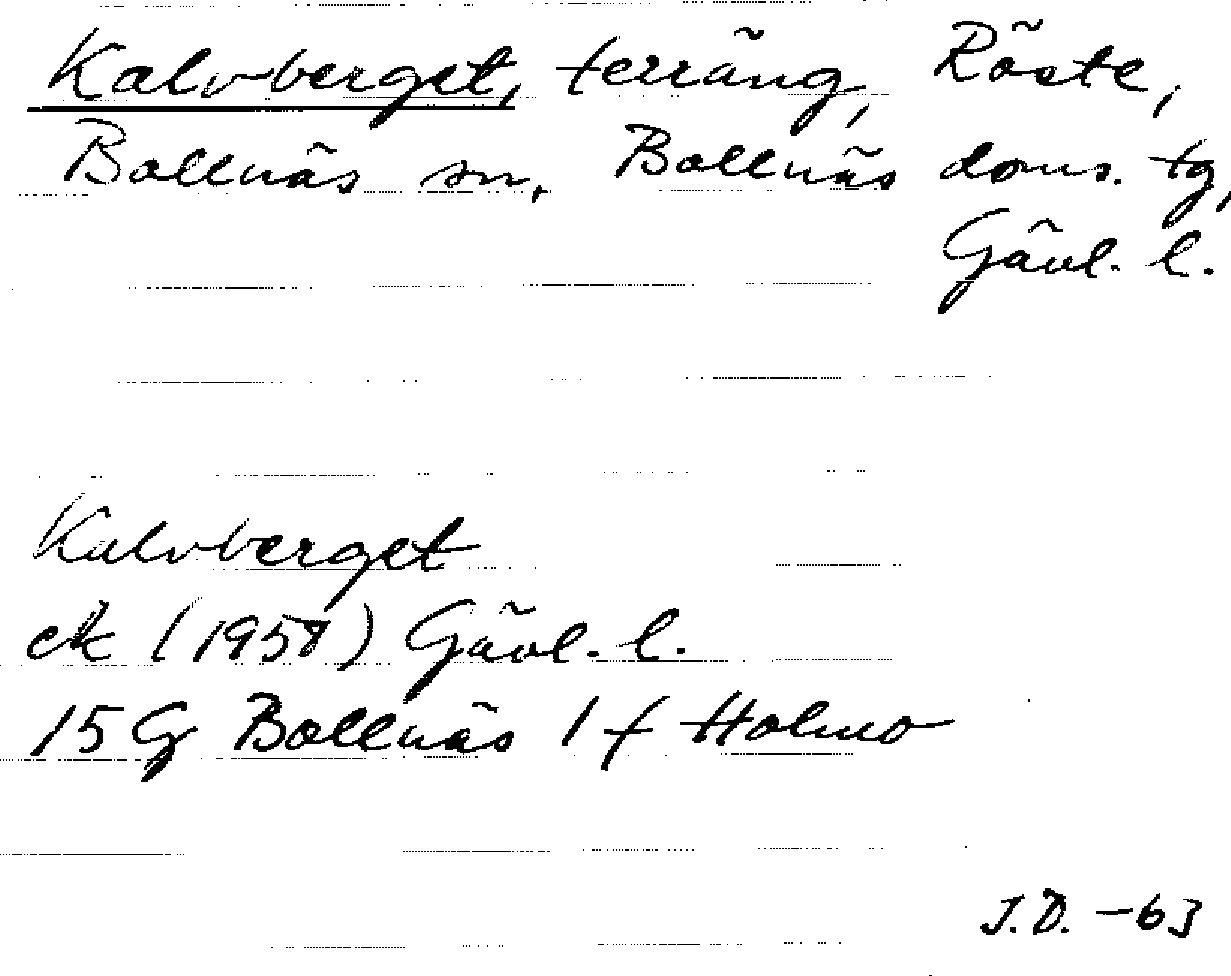 Kalvberget, terräng, Röste,
Bollnäs sn, Bollnäs doms. tg,
Gävl. l.
Kalvberget
ek (1958) Gävl. l.
15 G Bollnäs 1 f Holmo
J.D. -63